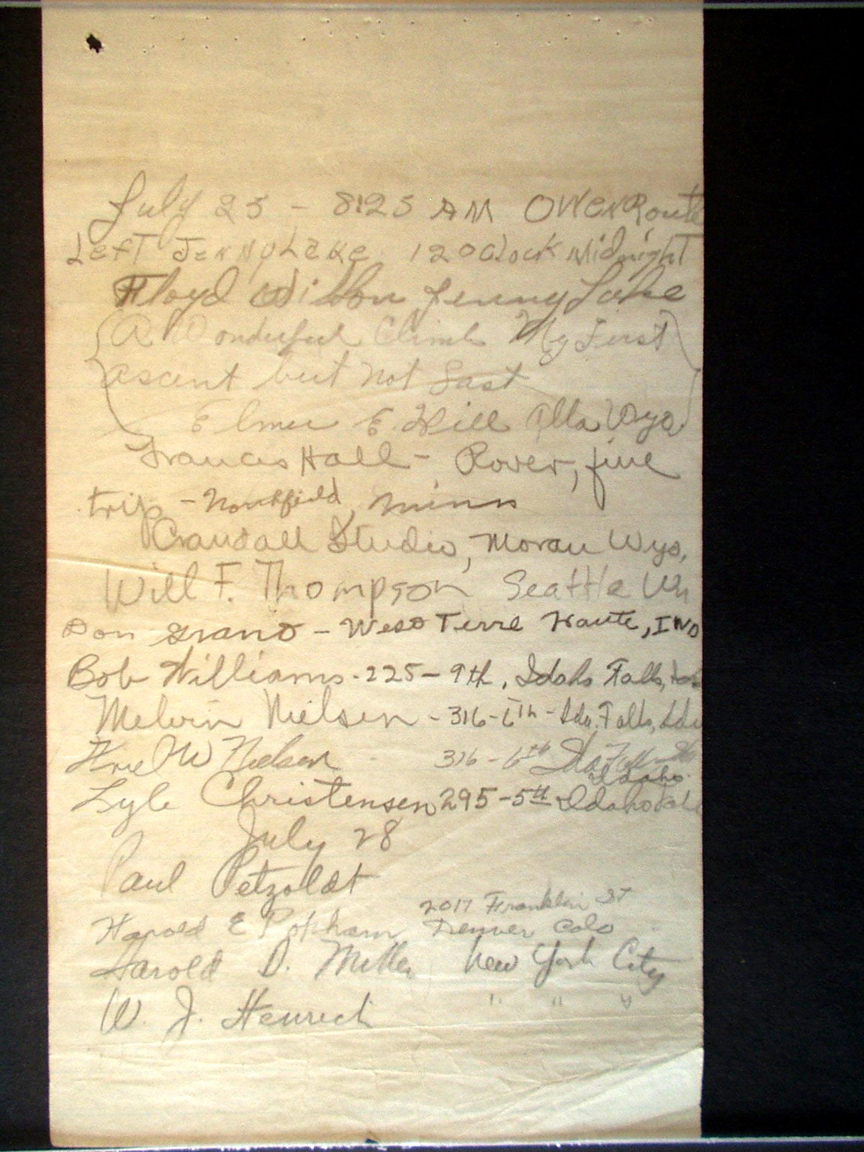 July 25 - 8:25 AM Owen Route
Left Jenny Lake 12 Oclock Midnight
Floyd Wilson Jenny Lake
A Wonderful Climb My First
ascent but not Last
Elmer E. Hill Alta Wyo
Francis Hall - Rover, fine
trip - Northfield, Minn
Crandall Studio, Moran Wyo,
Will F. Thompson Seattle Wn
Don Grant - West Terre Haute, IND
Bob Williams - 225 - 9th, Idaho Falls, Ida
Melvin Nielsen - 316 - 6th - Ida. Falls, Ida
W Nielsen 316 - 6th Ida Falls
Idaho
Lyle Christensen 295 - 5th Idaho
July 28
Paul Petzoldt
Harold E Popham 2017 Franklin ST
Denver Colo
Harold D. Miller New York City
W. J. Henrich " " "